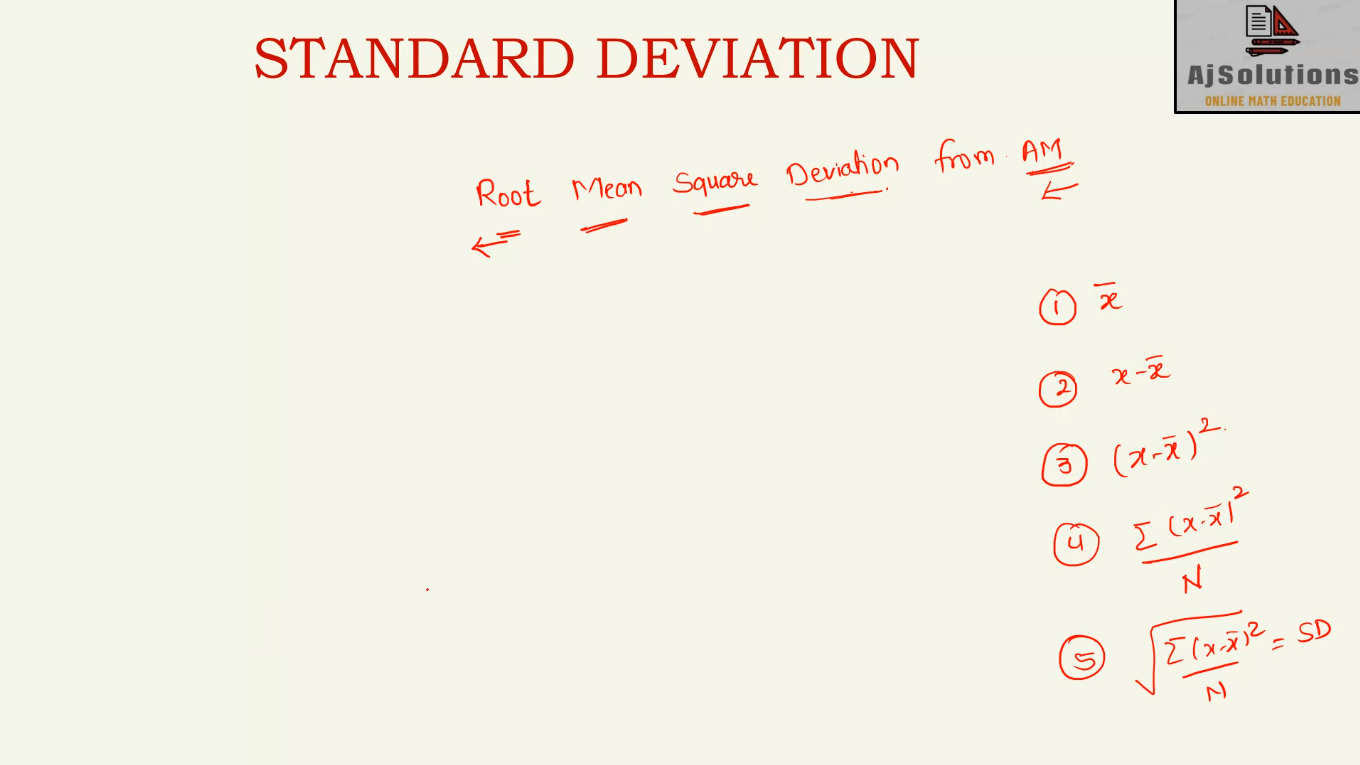 STANDARD DEVIATION
AjSolutions
ONLINE MATH EDUCATION
Root Mean Square Deviation from AM
① x̄
② x-x̄
③ (x-x̄)²
④ Σ(x-x̄)² / N
⑤ √(Σ(x-x̄)² / N) = SD